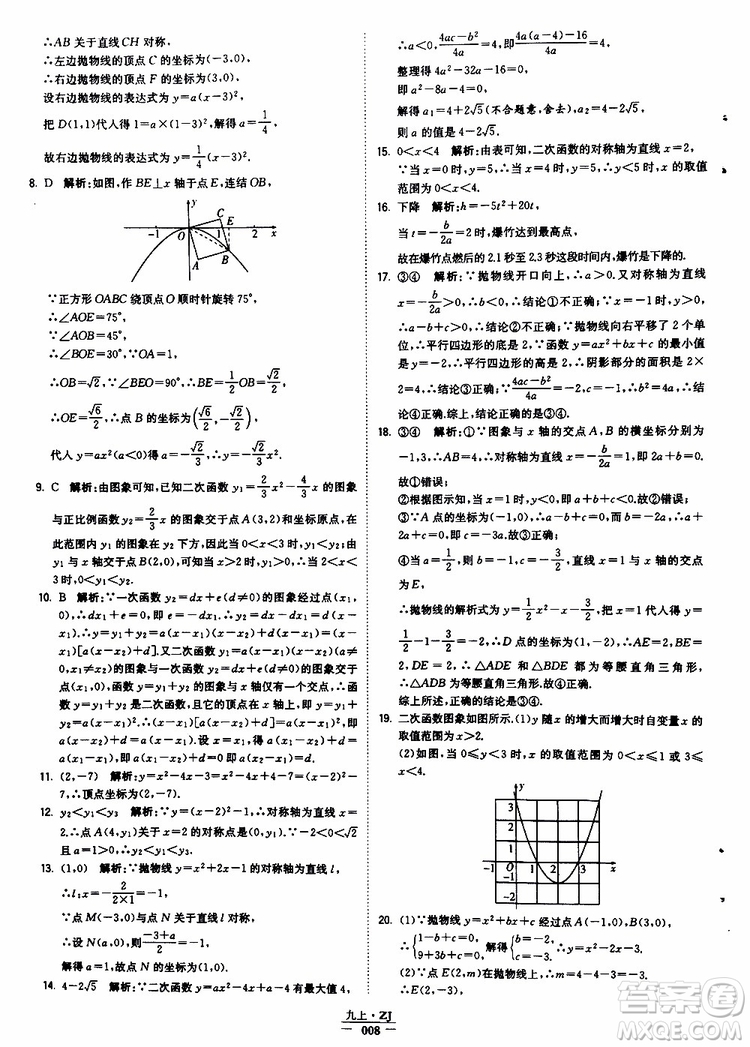 ∴AB 关于直线 CH 对称,
∴左边抛物线的顶点 C 的坐标为(-3,0),
∴右边抛物线的顶点 F 的坐标为(3,0),
设右边抛物线的表达式为 y=a(x-3)²,
把 D(1,1)代入得 1=a×(1-3)²,解得 a=1/4,
故右边抛物线的表达式为 y=1/4(x-3)².
8. D 解析:如图,作 BE⊥x 轴于点 E,连结 OB,
y
-1 O 1 E 2 x
A B
∵正方形 OABC 绕点 O 顺时针旋转 75°,
∴∠AOE=75°,
∵∠AOB=45°,
∴∠BOE=30°,∵OA=1,
∴OB=√2,∵∠BEO=90°,∴BE=1/2OB=√2/2,
∴OE=√6/2,∴点 B 的坐标为(√6/2,-√2/2),
代入 y=ax²(a<0)得 a=-√2/3.
9. C 解析:由图象可知,已知二次函数 y₁=2/3x²-4/3x 的图象
与正比例函数 y₂=2/3x 的图象交于点 A(3,2)和坐标原点,在
此范围内 y₁ 在 y₂ 的下方,故可知当 0<x<3 时,y₁<y₂,
由 y₁ 与 x 轴交于点 B(2,0),可知当 2<x<3 时,y₁>0,故当
2<x<3 时,0<y₁<y₂.
10. B 解析:∵一次函数 y₂=dx+e(d≠0)的图象过点(x₁,
0),∴dx₁+e=0,即 e=-dx₁,∴y₂=dx+e=d(x-
x₁).∴y=y₁+y₂=a(x-x₁)(x-x₂)+d(x-x₁)=(x-
x₁)[a(x-x₂)+d].又二次函数 y₁=a(x-x₁)(x-x₂)(a≠
0)的图象与一次函数 y₂=dx+e(d≠0)的图象交于点
(x₁,0),函数 y=y₁+y₂ 的图象与 x 轴仅有一个交点,∴函
数 y=y₁+y₂ 是二次函数,且它的顶点在 x 轴上,即 y=
y₁+y₂=a(x-x₁)²,∴(x-x₁)[a(x-x₂)+d]=a(x-
x₁)²,∴a(x-x₂)+d=a(x-x₁).故选 B.
11. (2,-7) 解析:∵y=x²-4x-3=x²-4x+4-7=(x-2)²-
7,∴顶点坐标为(2,-7).
12. y₂<y₁<y₃ 解析:∵y=(x-2)²-1,∴对称轴为直线 x=
2.∴点 A(4,y₁)关于 x=2 的对称点是(0,y₁).∵-2<0<√2
且 a=1>0,∴y₂<y₁<y₃.
13. (1,0) 解析:∵抛物线 y=x²+2x+a 的对称轴为直线 l,
∴l:x=-2/(2×1)=-1,
∵点 M(-3,0)与点 N 关于直线 l 对称,
∴设 N(a,0),则(-3+a)/2=-1,
解得 a=1.故点 N 的坐标为(1,0).
14. 4-2√5 解析:∵二次函数 y=ax²-4x+a 有最大值 4,
∴a<0,(4ac-b²)/4a=4,即(4a(a-4)-16)/4a=4,
整理得 4a²-8a-4=0,
解得 a₁=4+2√5(不合题意,舍去),a₂=4-2√5,
则 a 的值是 4-2√5.
15. 0<x<4 解析:由表可知,二次函数的对称轴为直线 x=2,
∵当 x=0 时,y=5,∴当 x=4 时,y=5,∴y<5 时,x 的取值
范围为 0<x<4.
16. 下降 解析:h=-5t²+20t,
当 t=-b/2a=2 时,爆竹达到最高点,
故在爆竹点燃后的 2.1 秒至 2.3 秒这段时间内,爆竹是下降的.
17. ③④ 解析:∵抛物线开口向上,∴a>0.又对称轴为直线
x=-b/2a>0,∴b<0,∴结论①不正确;∵当 x=-1 时,y>0,
∴a-b+c>0,∴结论②不正确;∵抛物线向右平移了 2 个单
位,∴平行四边形的底是 2,∵函数 y=ax²+bx+c 的最小值
是 y=-2,∴平行四边形的高是 2,∴阴影部分的面积是 2×
2=4,∴结论③正确;∵(4ac-b²)/4a=-2,c=-1,∴b²=4a,∴结
论④正确.综上,结论正确的是③④.
18. ③④ 解析:①∵图象与 x 轴的交点 A,B 的横坐标分别为
-1,3,∴AB=4,∴对称轴为直线 x=-b/2a=1,∴2a+b=0.
故①错误;
②根据图示知,当 x=1 时,y<0,即 a+b+c<0.故②错误;
③∵A 点的坐标为(-1,0),∴a-b+c=0,又 b=-2a,
∴a+2a+c=0,∴c=-3a.故③正确;
④当 a=1/2,则 b=-1,c=-3/2,直线 x=1 与 x 轴的交点为 E,
∴抛物线的解析式为 y=1/2x²-x-3/2,把 x=1 代入得 y=
1/2-1-3/2=-2,∴D 点的坐标为(1,-2),∴AE=2,BE=
2,DE=2,∴△ADE 和△BDE 都为等腰直角三角形,
∴△ADB 为等腰直角三角形.故④正确.
综上所述,正确的是③④.
19. 二次函数图象如图所示.(1)y 随 x 的增大而增大时自变量 x 的
取值范围为 x>2.
(2)如图,当 0≤y<3 时,x 的取值范围为 0<x≤1 或 3≤x<4.
y
3
2
1
-1 O 1 2 3 x
-1
-2
20. (1)∵抛物线 y=x²+bx+c 经过点 A(-1,0),B(3,0),
∴{1-b+c=0, 9+3b+c=0, 解得{b=-2, c=-3, ∴y=x²-2x-3.
(2)∵点 E(2,m)在抛物线上,∴m=4-4-3=-3,
∴E(2,-3),
九上·ZJ
008
答案圈